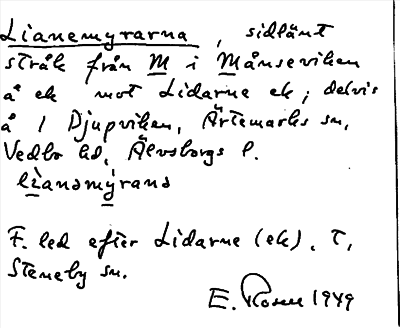 Lianemyrarna, sidlänt
stråk från M i Månseviken
å ek mot Lidarne ek; delvis
å 1 Djupviken, Ärtemarks sn,
Vedbo hd, Älvsborgs l.
lìanamýrana
F. led efter Lidarne (ek), T,
Steneby sn.
E. Rosen 1949